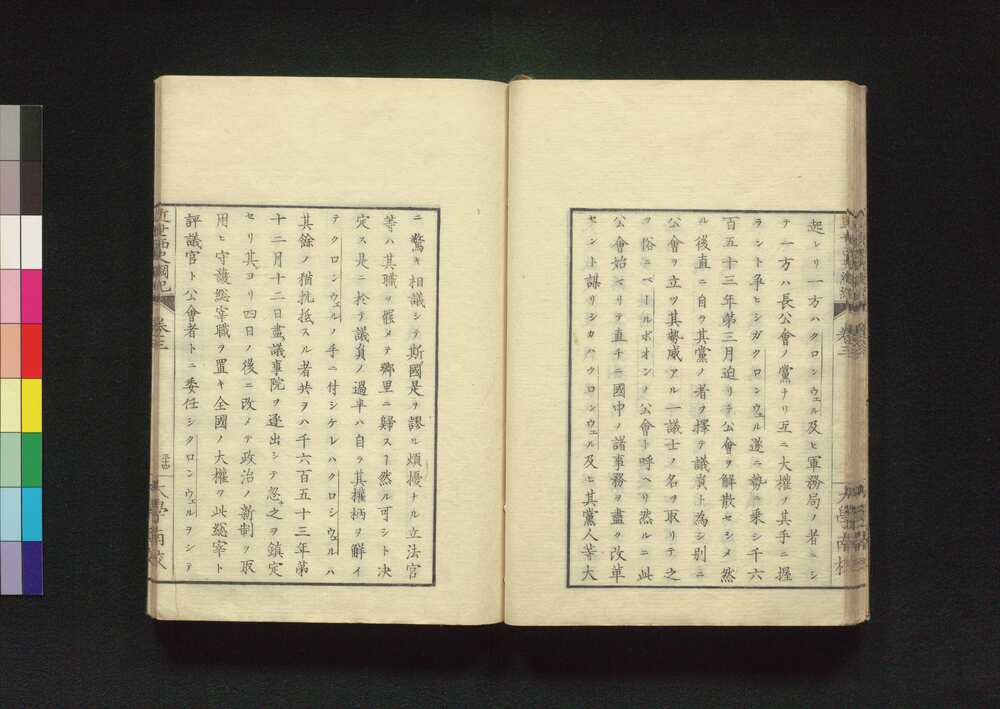 起レリ一方ハクロンウェル及ヒ軍務局ノ者ニシ
テ一方ハ長公會ノ黨ナリ互ニ大権ヲ其手ニ握
ラント争ヒシガクロンウェル遂ニ勢ニ乗シ千六
百五十三年第三月迫リテ公會ヲ解散セシメ然
ル後直ニ自ラ其黨ノ者ヲ擇テ議員ト為シ別ニ
公會ヲ立ツ其勢威アル一議士ノ名ヲ取リテ之
ヲ俗ニベールボオンノ公會ト呼ヘリ然ルニ此
公會始ベリテ直チニ國中ノ諸事務ヲ盡ク改革
セント謀リシカクロンウェル及ヒ其黨人等大
ニ驚キ相議シテ斯國是ヲ謬ル煩擾ナル立法官
等ハ其職ヲ罷メテ郷里ニ歸スヿ然ル可シト決
定ス是ニ於テ議員ノ過半ハ自ラ其權柄ヲ解イ
テクロンウェルノ手ニ付シケレハクロンウェルハ
其餘ノ猶抗抵スル者共ヲハ千六百五十三年第
十二月十二日盡議事院ヲ逐出シテ忽之ヲ鎮定
セリ其ヨリ四日ノ後ニ改メテ政治ノ新制ヲ取
用ヒ守護総宰職ヲ置キ全國ノ大權ヲ此総宰ト
評議官ト公會者トニ委任シクロンウェルヲシテ
近世西史綱紀
卷三
大學南校